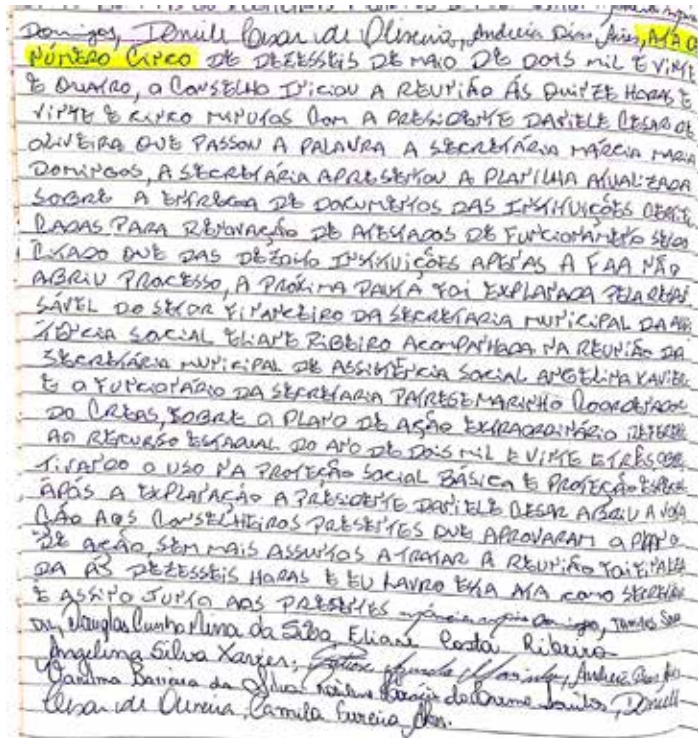 Domingos, Daniele Cesar de Oliveira, Andreia Dias Aires, ATA O
NÚMERO CINCO DE DEZESSEIS DE MAIO DE DOIS MIL E VINTE
E QUATRO, O CONSELHO INICIOU A REUNIÃO ÀS QUINZE HORAS E
VINTE E CINCO MINUTOS COM A PRESIDENTE DANIELE CESAR DE
OLIVEIRA QUE PASSOU A PALAVRA A SECRETÁRIA MÁRCIA MARIA
DOMINGOS, A SECRETÁRIA APRESENTOU A PLANILHA ATUALIZADA
SOBRE A ENTREGA DE DOCUMENTOS DAS INSTITUIÇÕES CERTIFI
CADAS PARA RENOVAÇÃO DE ATESTADOS DE FUNCIONAMENTO SENDO
CITADO QUE DAS DEZOITO INSTITUIÇÕES APENAS A FAA NÃO
ABRIU PROCESSO, A PRÓXIMA PAUTA FOI EXPLANADA PELA RESPON
SÁVEL DO SETOR FINANCEIRO DA SECRETARIA MUNICIPAL DA ASSIS
TÊNCIA SOCIAL ELIANE RIBEIRO ACOMPANHADA NA REUNIÃO DA
SECRETÁRIA MUNICIPAL DE ASSISTÊNCIA SOCIAL ANGELINA XAVIER
E O FUNCIONÁRIO DA SECRETARIA MARINHO COORDENADOR
DO CREAS, SOBRE O PLANO DE AÇÃO EXTRAORDINÁRIO REFERENTE
AO RECURSO ESTADUAL DO ANO DE DOIS MIL E VINTE E TRÊS
O USO NA PROTEÇÃO SOCIAL BÁSICA E PROTEÇÃO ESPECIAL
APÓS A EXPLANAÇÃO A PRESIDENTE DANIELE CESAR ABRIU A VOTA
ÇÃO AOS CONSELHEIROS PRESENTES QUE APROVARAM O PLANO
DE AÇÃO, SEM MAIS ASSUNTOS A TRATAR A REUNIÃO FOI FINALIZA
DA ÀS DEZESSEIS HORAS E EU LAVRO ESTA ATA COMO SECRETÁRIA
E ASSINO JUNTO AOS PRESENTES
Douglas Cunha da Silva, Eliane Costa Ribeiro
Angelina Silva Xavier, Andreia
da Silva do Carmo Santos, Daniele
Cesar de Oliveira, Camila